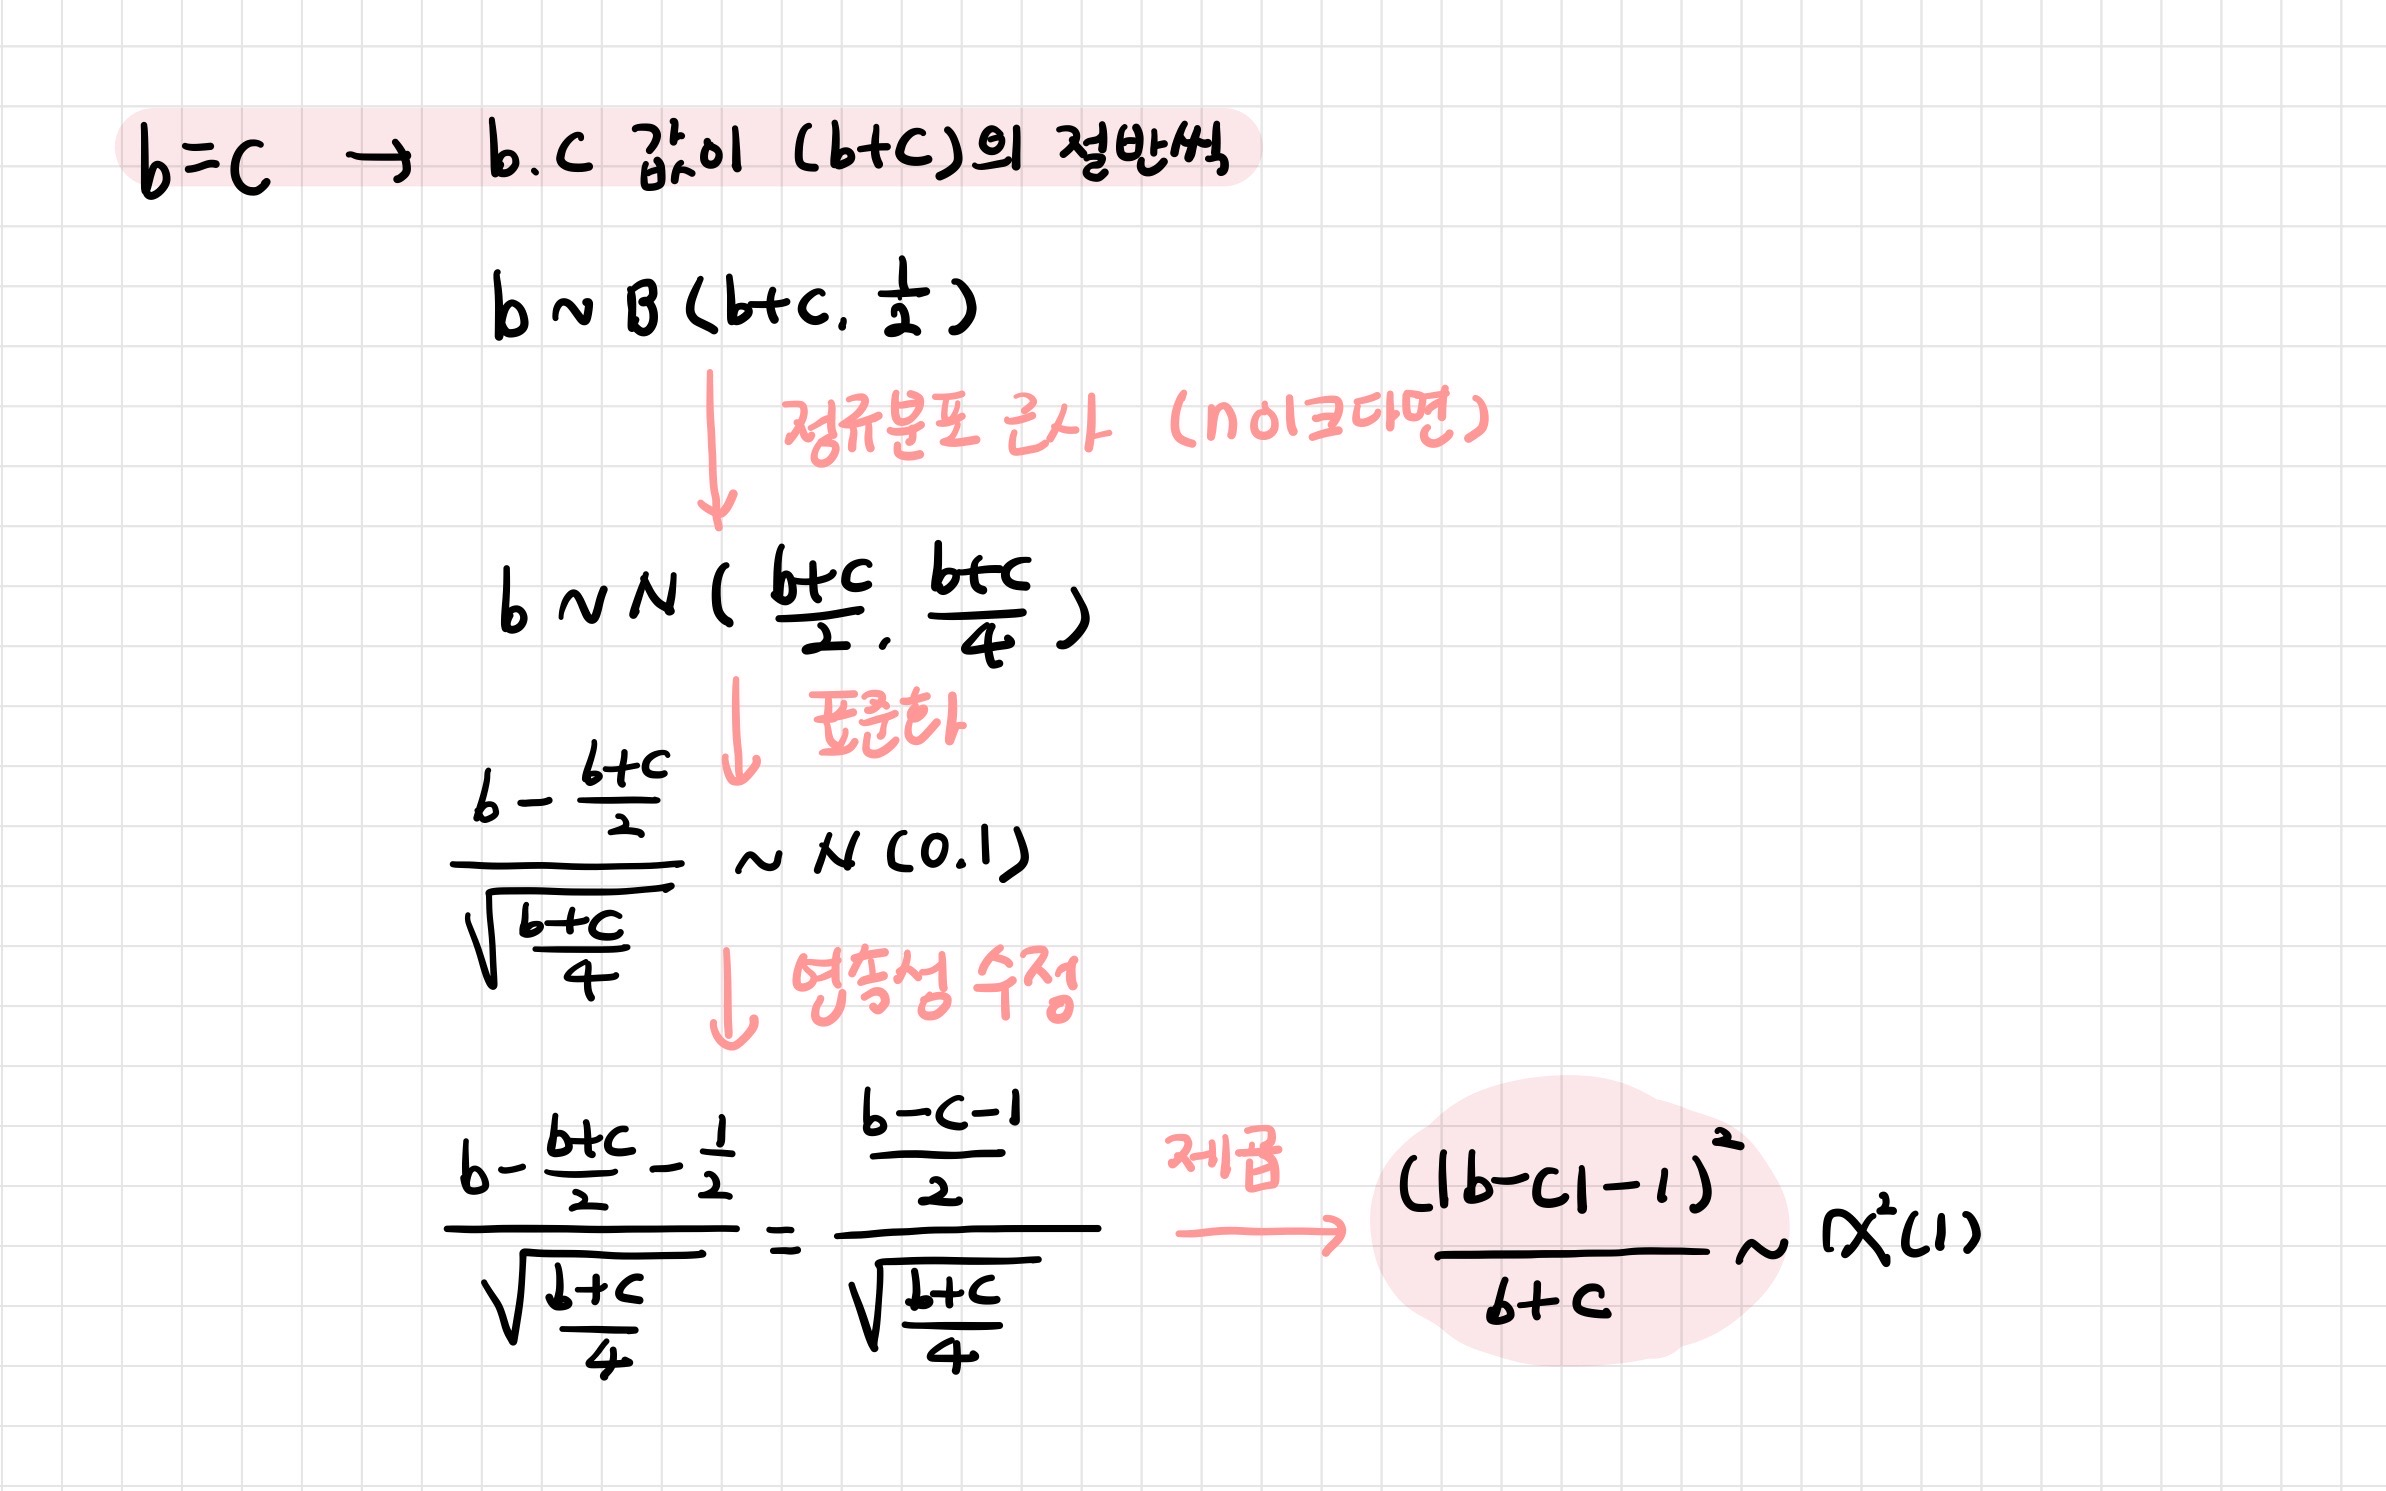 b=c → b. c 값이 (b+c)의 절반씩
b ~ B (b+c, 1/2)
정규분포 근사 (n이크다면)
b ~ N ( (b+c)/2 , (b+c)/4 )
표준화
(b - (b+c)/2) / √((b+c)/4) ~ N (0.1)
연속성 수정
(b - (b+c)/2 - 1/2) / √((b+c)/4) = ((b-c-1)/2) / √((b+c)/4) 제곱 → (|b-c|-1)² / (b+c) ~ χ²(1)